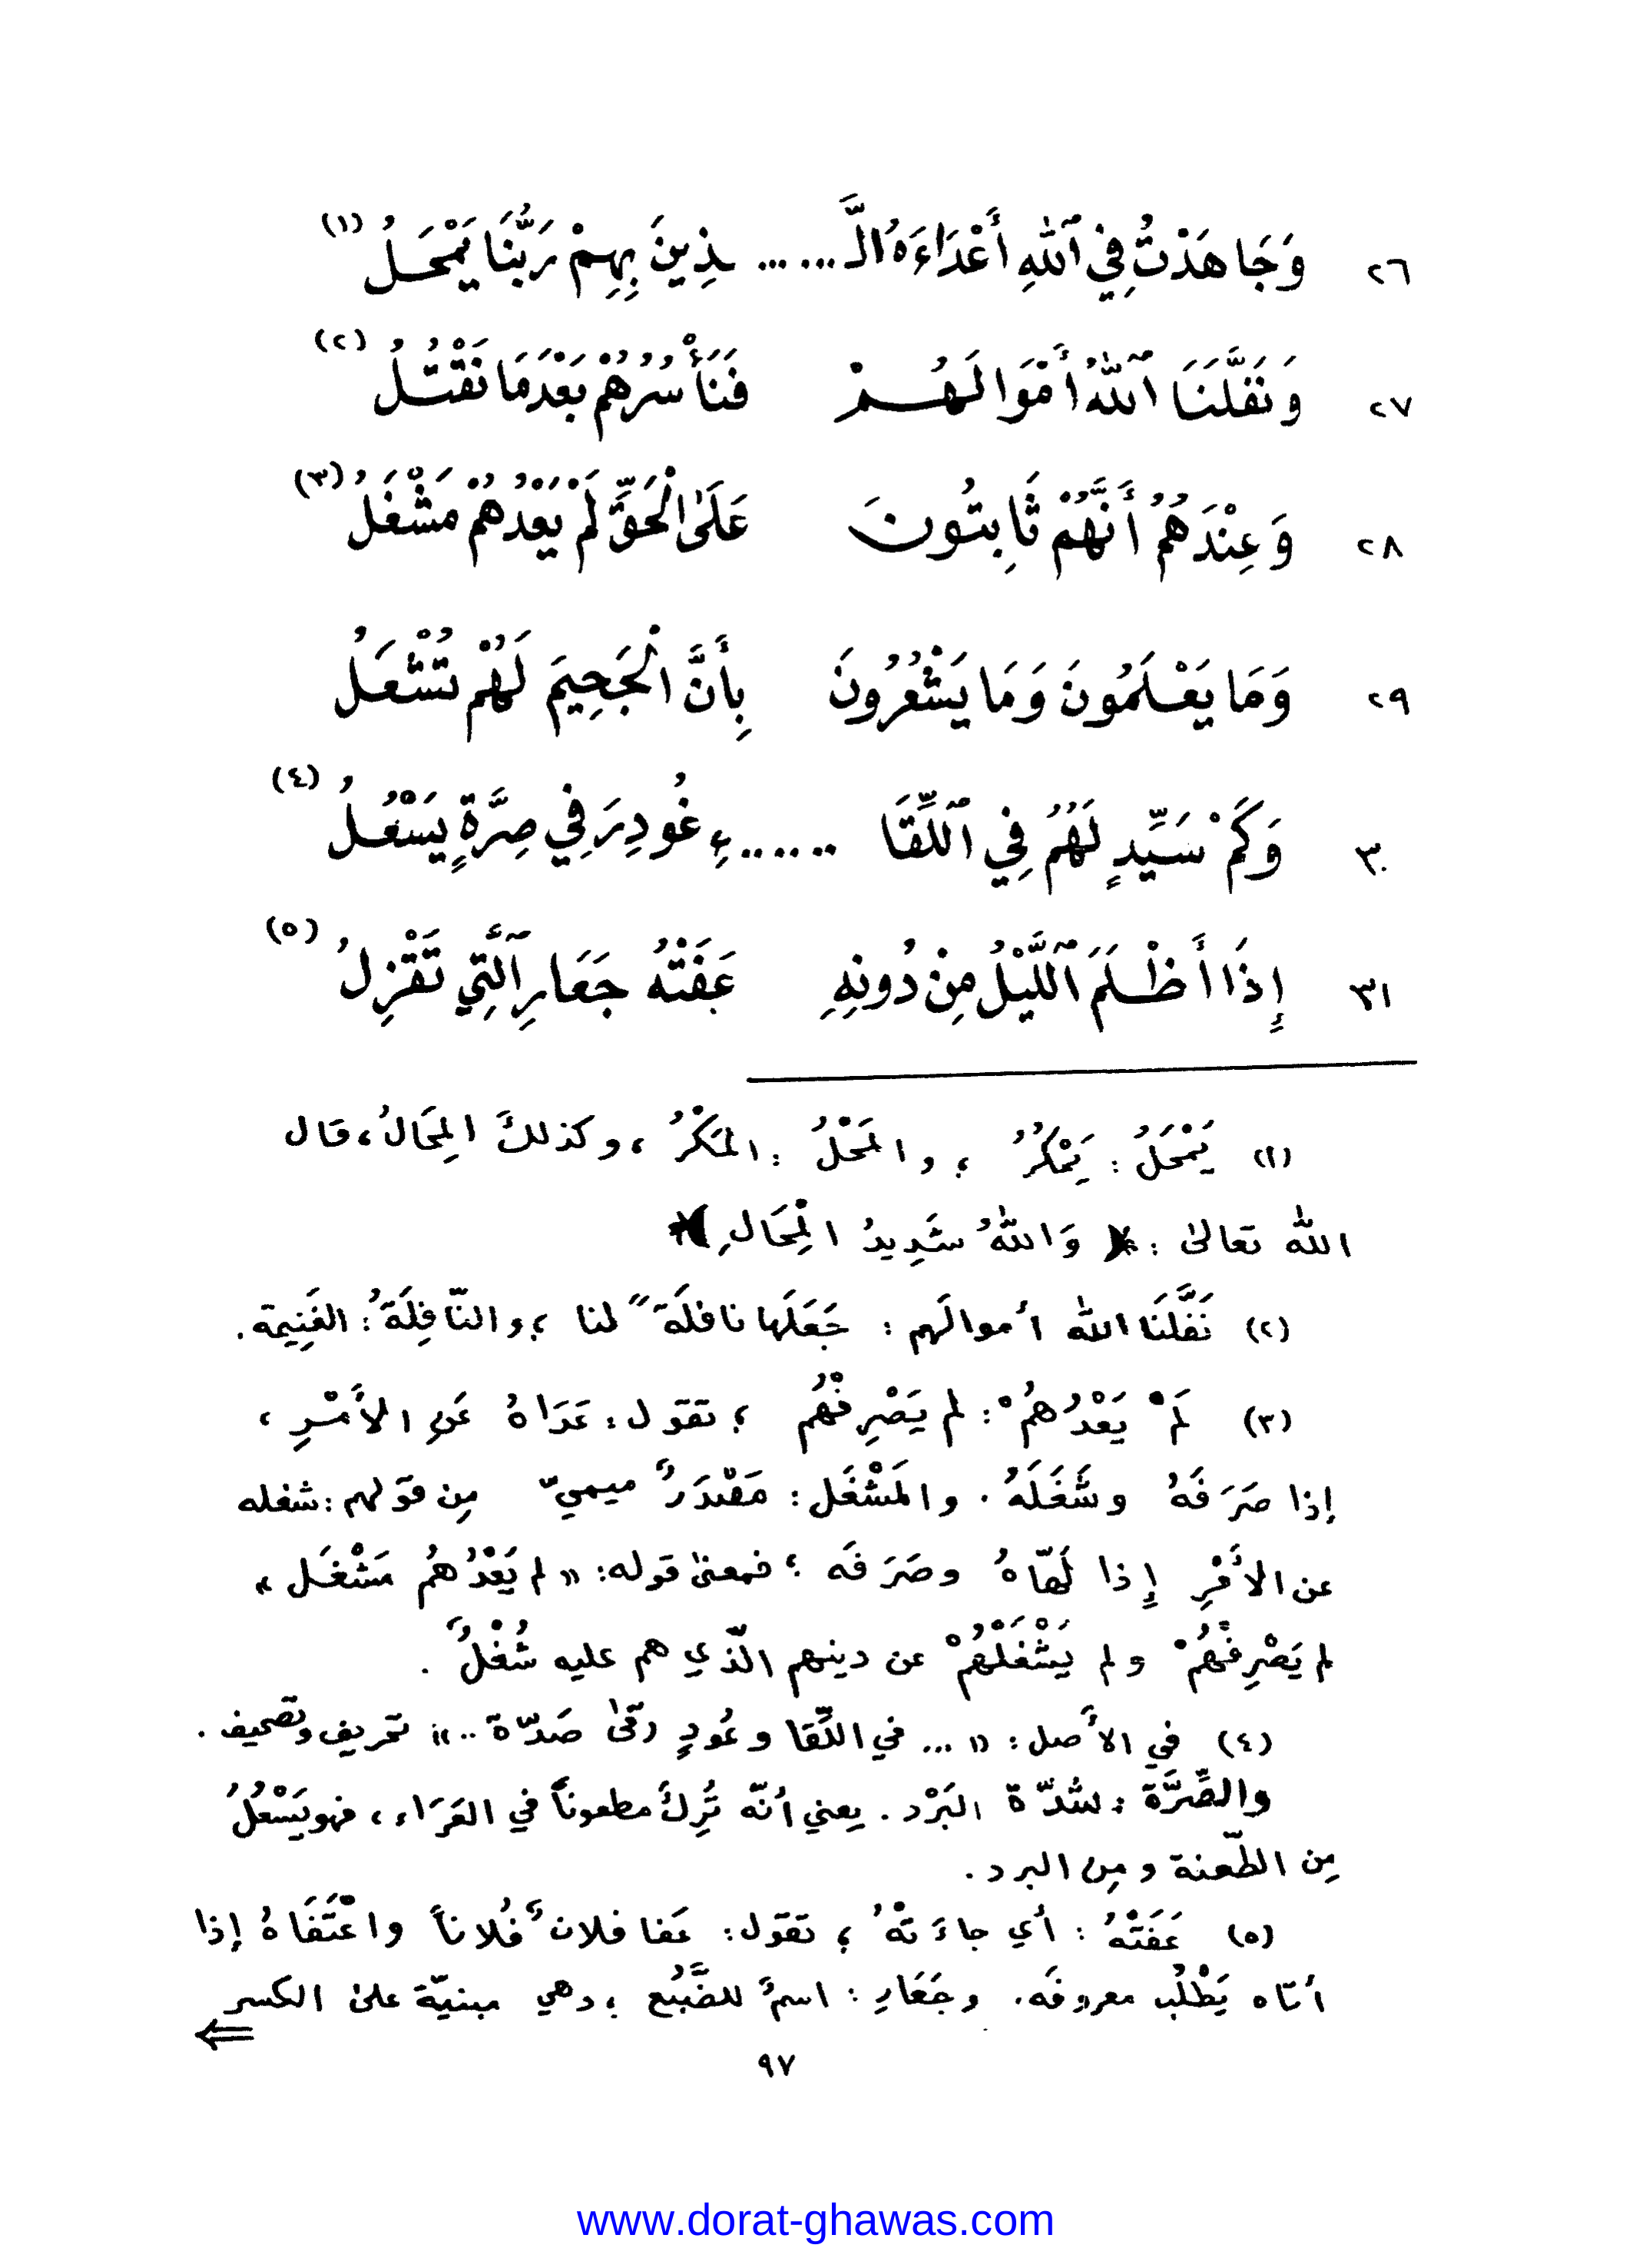 ٢٦ وَجَاهَدْتُ فِي ٱللهِ أَعْدَاءَهُ الَّـ...... ـذِينَ بِهِمْ رَبُّنَا يَمْحَلُ (١)
٢٧ وَنَفَّلَنَا ٱللهُ أَمْوَالَهُمْ فَنَأْسُرُهُمْ بَعْدَمَا نَقْتُلُ (٢)
٢٨ وَعِنْدَهُمُ أَنَّهُمْ ثَابِتُونَ عَلَى الْحَقِّ لَمْ يَعْدُهُمْ مَشْغَلُ (٣)
٢٩ وَمَا يَعْلَمُونَ وَمَا يَشْعُرُونَ بِأَنَّ الْجَحِيمَ لَهُمْ تُشْعَلُ
٣٠ وَكَمْ سَيِّدٍ لَهُمُ فِي ٱللِّقَا ......ءِ غُودِرَ فِي صِرَّةٍ يَسْعُلُ (٤)
٣١ إِذَا أَظْلَمَ ٱللَّيْلُ مِنْ دُونِهِ عَفَتْهُ جَعَارِ ٱلَّتِي تَقْزِلُ (٥)
(١) يَمْحَلُ : يَمْكُرُ ؛ والمَحْلُ : المَكْرُ ، وكذلكَ المِحَالُ ، قال
الله تعالىٰ : ﴿ وَاللهُ شَدِيدُ الْمِحَالِ ﴾
(٢) نَفَّلَنَا الله أموالَهم : جَعَلَها نافلَةً لنا ؛ والنّافِلَةُ : الغَنِيمة .
(٣) لَمْ يَعْدُهُمْ : لم يَصْرِفْهُم ؛ تقول : عَدَاهُ عَنِ الأَمْرِ ،
إذا صَرَفَهُ وشَغَلَهُ . والمَشْغَل : مَصْدَرٌ ميميّ مِن قولهم : شغله
عن الأَمْرِ إِذا لَهّاهُ وصَرَفَه ؛ فمعنىٰ قوله : « لم يَعْدُهُمُ مَشْغَل »
لم يَصْرِفْهُمْ ولم يَشْغَلْهُمْ عن دينهم الّذي هم عليه شُغْلٌ .
(٤) في الأَصل : « ... في اللِّقا وعُودٍ رقىٰ صَدّة .. » تحريف وتصحيف .
والصِّرَّة : شدّة البَرْد . يعني أنّه تُرِكَ مطعوناً في العَرَاء ، فهو يَسْعُلُ
مِن الطّعنة ومِن البرد .
(٥) عَفَتْهُ : أي جاءَتْهُ ؛ تقول : عَفا فلانٌ فُلاناً واعْتَفَاهُ إذا
أتاه يَطْلُب معروفَه . وجَعَارِ : اسمٌ للضَّبُع ؛ وهي مبنيّة علىٰ الكسر
⇐
٩٧
www.dorat-ghawas.com